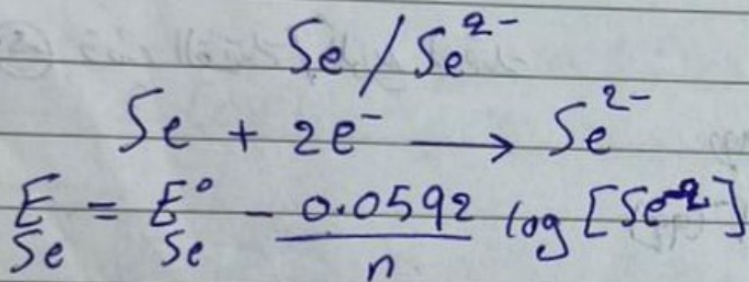 Se/Se²⁻
Se + 2e⁻ → Se²⁻
E_Se = E°_Se - 0.0592/n log [Se⁻²]